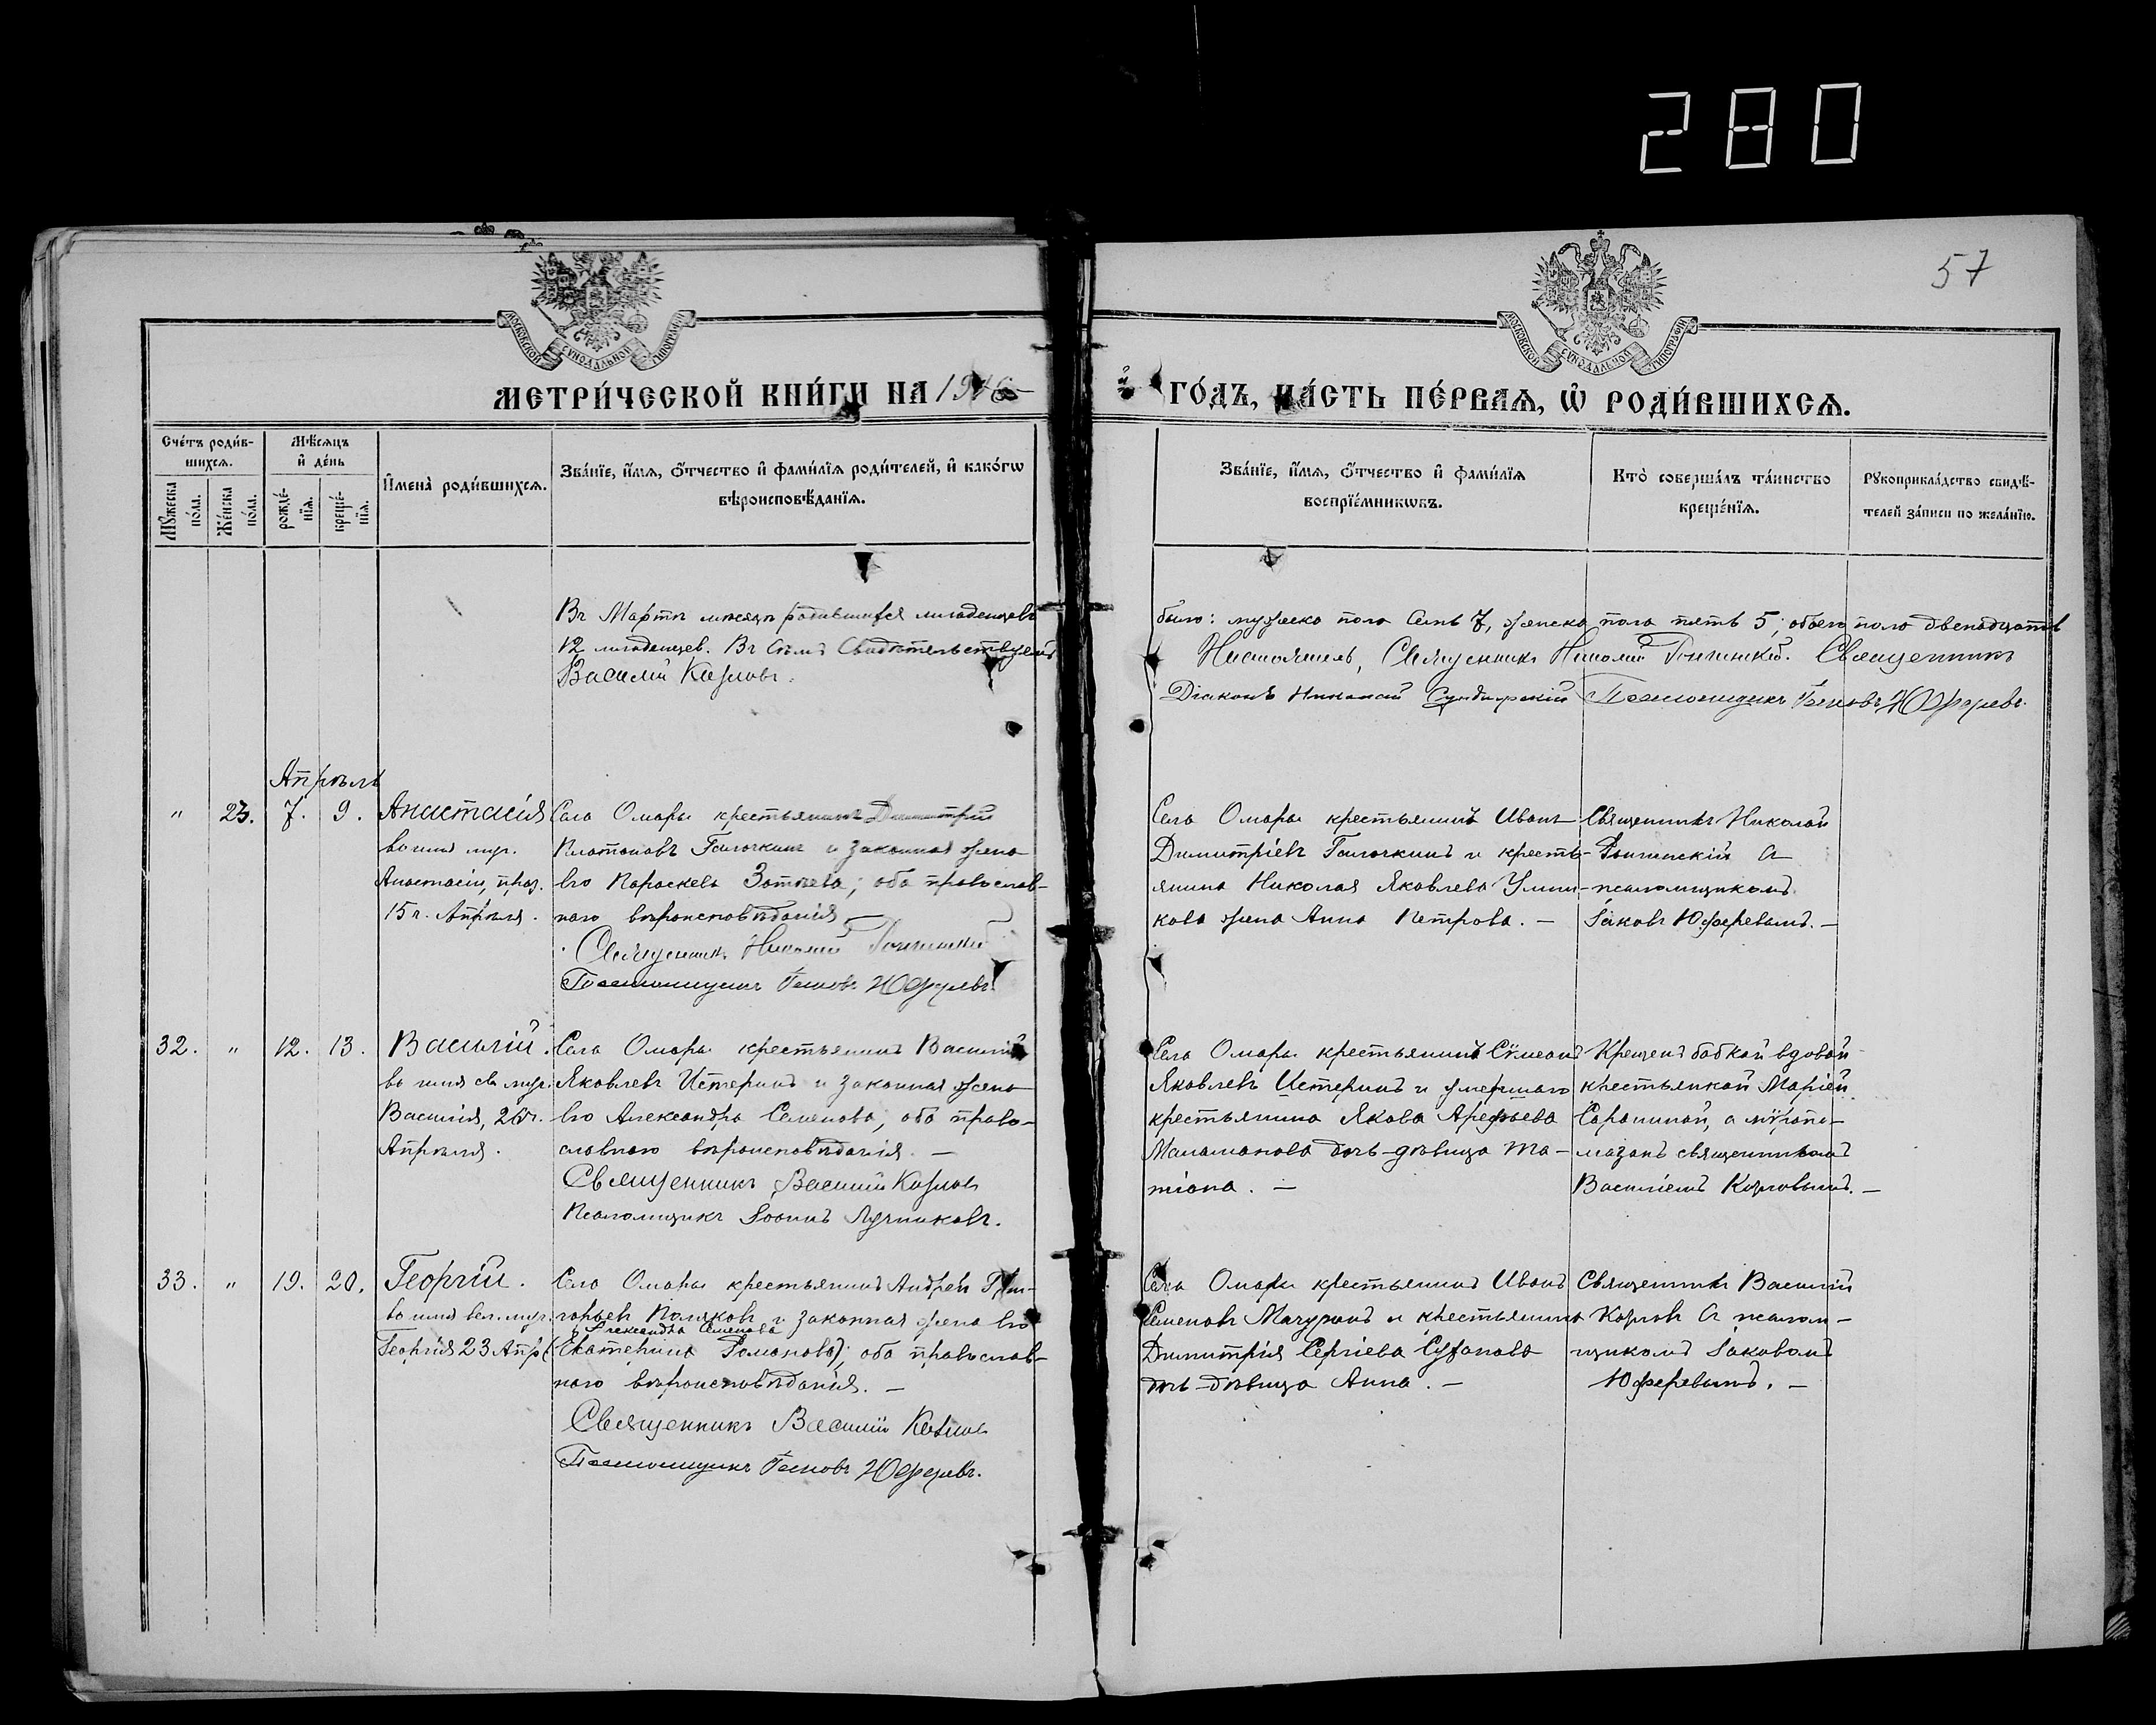 280
57
МОСКОВСКОЙ СУНОДАЛЬНОЙ ТИПОГРАФІИ
МОСКОВСКОЙ СУНОДАЛЬНОЙ ТИПОГРАФІИ
МЕТРИ́ЧЕСКОЙ КНИ́ГИ НА
ГО́ДЪ, ЧА́СТЬ ПЕ́РВАѦ, Ѡ РОДИ́ВШИХСѦ.
Счéтъ роди́в-
шихсѧ.
Мꙋжеска по́ла.
Же́нска по́ла.
Мѣ́сѧцъ
и҆ де́нь
рожде́-
нїѧ.
креще́-
нїѧ.
И҆мена̀ роди́вшихсѧ.
Зва́нїе, и҆́мѧ, ѻ҆́тчество и҆ фами́лїѧ роди́телей, и҆ како́гѡ
вѣроисповѣ́данїѧ.
Зва́нїе, и҆́мѧ, ѻ҆́тчество и҆ фами́лїѧ
воспрїе́мникѡвъ.
Кто̀ соверша́лъ та́инство
креще́нїѧ.
Рꙋкоприкла́дство свидѣ́-
телей за́писи по жела́нїю.
Въ Мартѣ мѣсяцѣ родившихся младенцевъ
было: мужеска пола семь 7, женска пола пять 5; обоего пола двенадцать
12 младенцев. Въ семъ свидѣтельствуемъ
Настоятель, Священникъ Николай Священникъ
Василій Козловъ.
Діаконъ Николай Псаломщикъ Іаковъ Юферевъ.
Апрѣль
" 23. 7. 9. Анастасія
во имя муч.
Анастасіи, праз.
15 ч. Апрѣля.
Села Омары крестьянинъ Димитрій
Платоновъ Галочкинъ и законная жена
его Параскева Зотѣева; оба православ-
наго вѣроисповѣданія. —
Священникъ Николай
Псаломщикъ Іаковъ Юферевъ.
Села Омары крестьянинъ Иванъ
Димитріевъ Галочкинъ и кресть-
янина Николая Яковлева Умни-
кова жена Анна Петрова. —
Священникъ Николай
съ
псаломщикомъ
Іаковъ Юферевымъ. —
32. " 12. 13. Василій.
во имя св. муч.
Василія, 26 ч.
Апрѣля.
Села Омары крестьянинъ Василій
Яковлевъ Истеринъ и законная жена
его Александра Семенова; оба право-
славнаго вѣроисповѣданія. —
Священникъ Василій Козловъ
Псаломщикъ Іоаннъ Лучниковъ.
Села Омары крестьянинъ Сѵмеонъ
Яковлевъ Истеринъ и умершаго
крестьянина Якова Арефьева
Маламанова дочь-дѣвица Та-
тіана. —
Крещенъ бабкой вдовой
крестьянкой Маріей
Сараниной, а мѵропо-
мазанъ священникомъ
Василіемъ Козловымъ. —
33. " 19. 20. Георгій.
во имя вел. муч.
Георгія 23 Апр.
Села Омары крестьянинъ Андрей Гри-
горьев Поляковъ и законная жена его
Александра Семенова
(Екатерина Романова); оба православ-
наго вѣроисповѣданія. —
Священникъ Василій Козлов
Псаломщикъ Іаковъ Юферевъ.
Села Омары крестьянинъ Иванъ
Семеновъ Мачуринъ и крестьянина
Димитрія Сергіева Сузанова
дочь-дѣвица Анна. —
Священникъ Василій
Козловъ съ псалом-
щикомъ Іаковомъ
Юферевымъ. —